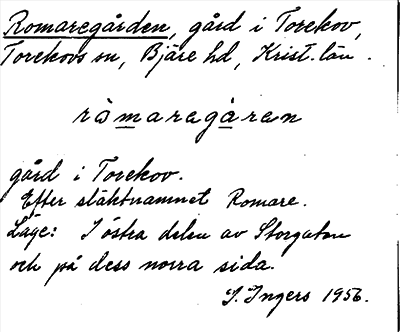 Romaregården, gård i Torekov,
Torekovs sn, Bjäre hd, Krist. län.
ràmaregåren
gård i Torekov.
Efter släktnamnet Romare.
Läge: I östra delen av Storgatan
och på dess norra sida.
I. Ingers 1956.